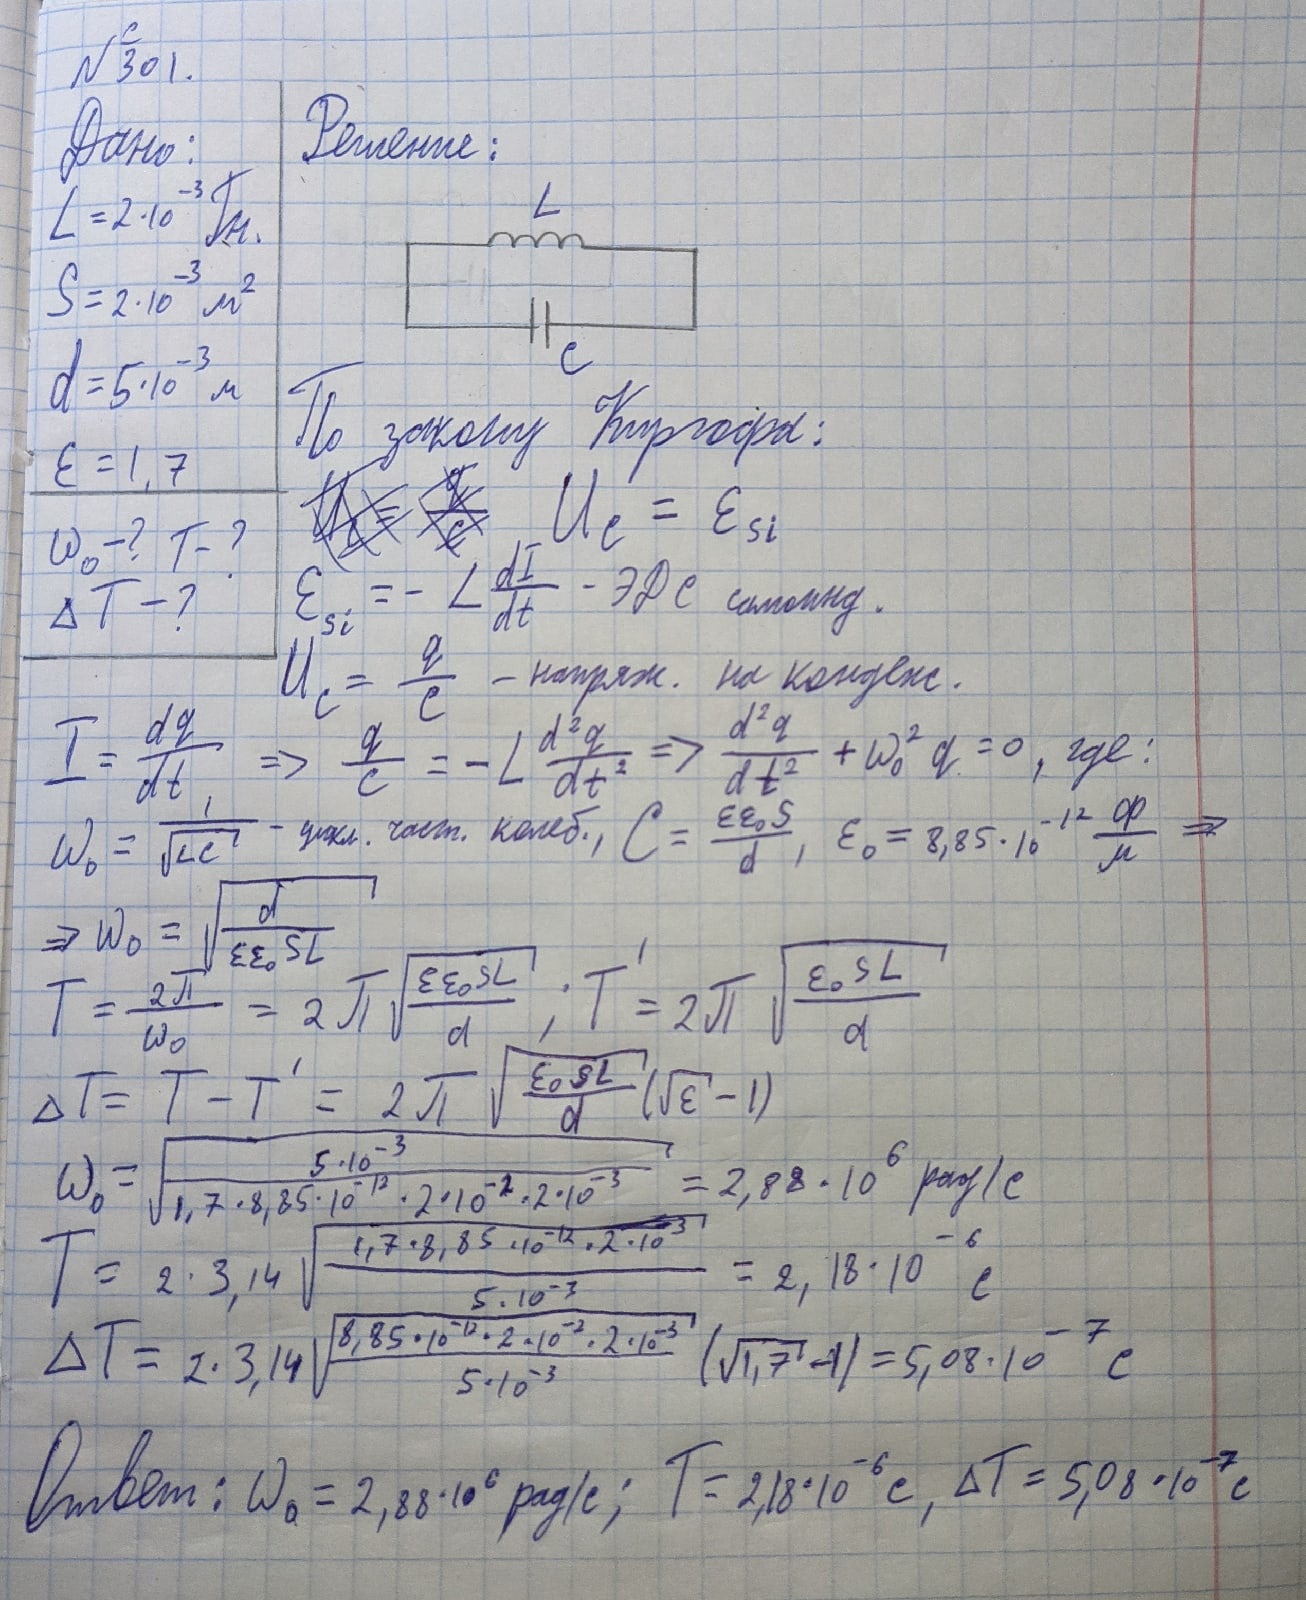 № с301.
Дано:
L = 2·10⁻³ Гн.
S = 2·10⁻³ м²
d = 5·10⁻³ м
ε = 1,7
ω₀ -? T - ?
ΔT - ?
Решение:
L
C
По закону Киргофа:
U_C = ε_si
ε_si = - L dI/dt - ЭДС самоинд.
U_C = q/C - напряж. на конденс.
I = dq/dt => q/C = -L d²q/dt² => d²q/dt² + ω₀² q = 0, где:
ω₀ = 1/√(LC) - цикл. част. колеб., C = εε₀S/d, ε₀ = 8,85·10⁻¹² Ф/м =>
=> ω₀ = √(d/(εε₀SL))
T = 2π/ω₀ = 2π√(εε₀SL/d); T' = 2π√(ε₀SL/d)
ΔT = T - T' = 2π√(ε₀SL/d) (√ε - 1)
ω₀ = √(5·10⁻³/(1,7·8,85·10⁻¹²·2·10⁻²·2·10⁻³)) = 2,88·10⁶ рад/с
T = 2·3,14√(1,7·8,85·10⁻¹²·2·10⁻³/(5·10⁻³)) = 2,18·10⁻⁶ с
ΔT = 2·3,14√(8,85·10⁻¹²·2·10⁻²·2·10⁻³/(5·10⁻³)) (√1,7 - 1) = 5,08·10⁻⁷ с
Ответ: ω₀ = 2,88·10⁶ рад/с; T = 2,18·10⁻⁶ с, ΔT = 5,08·10⁻⁷ с